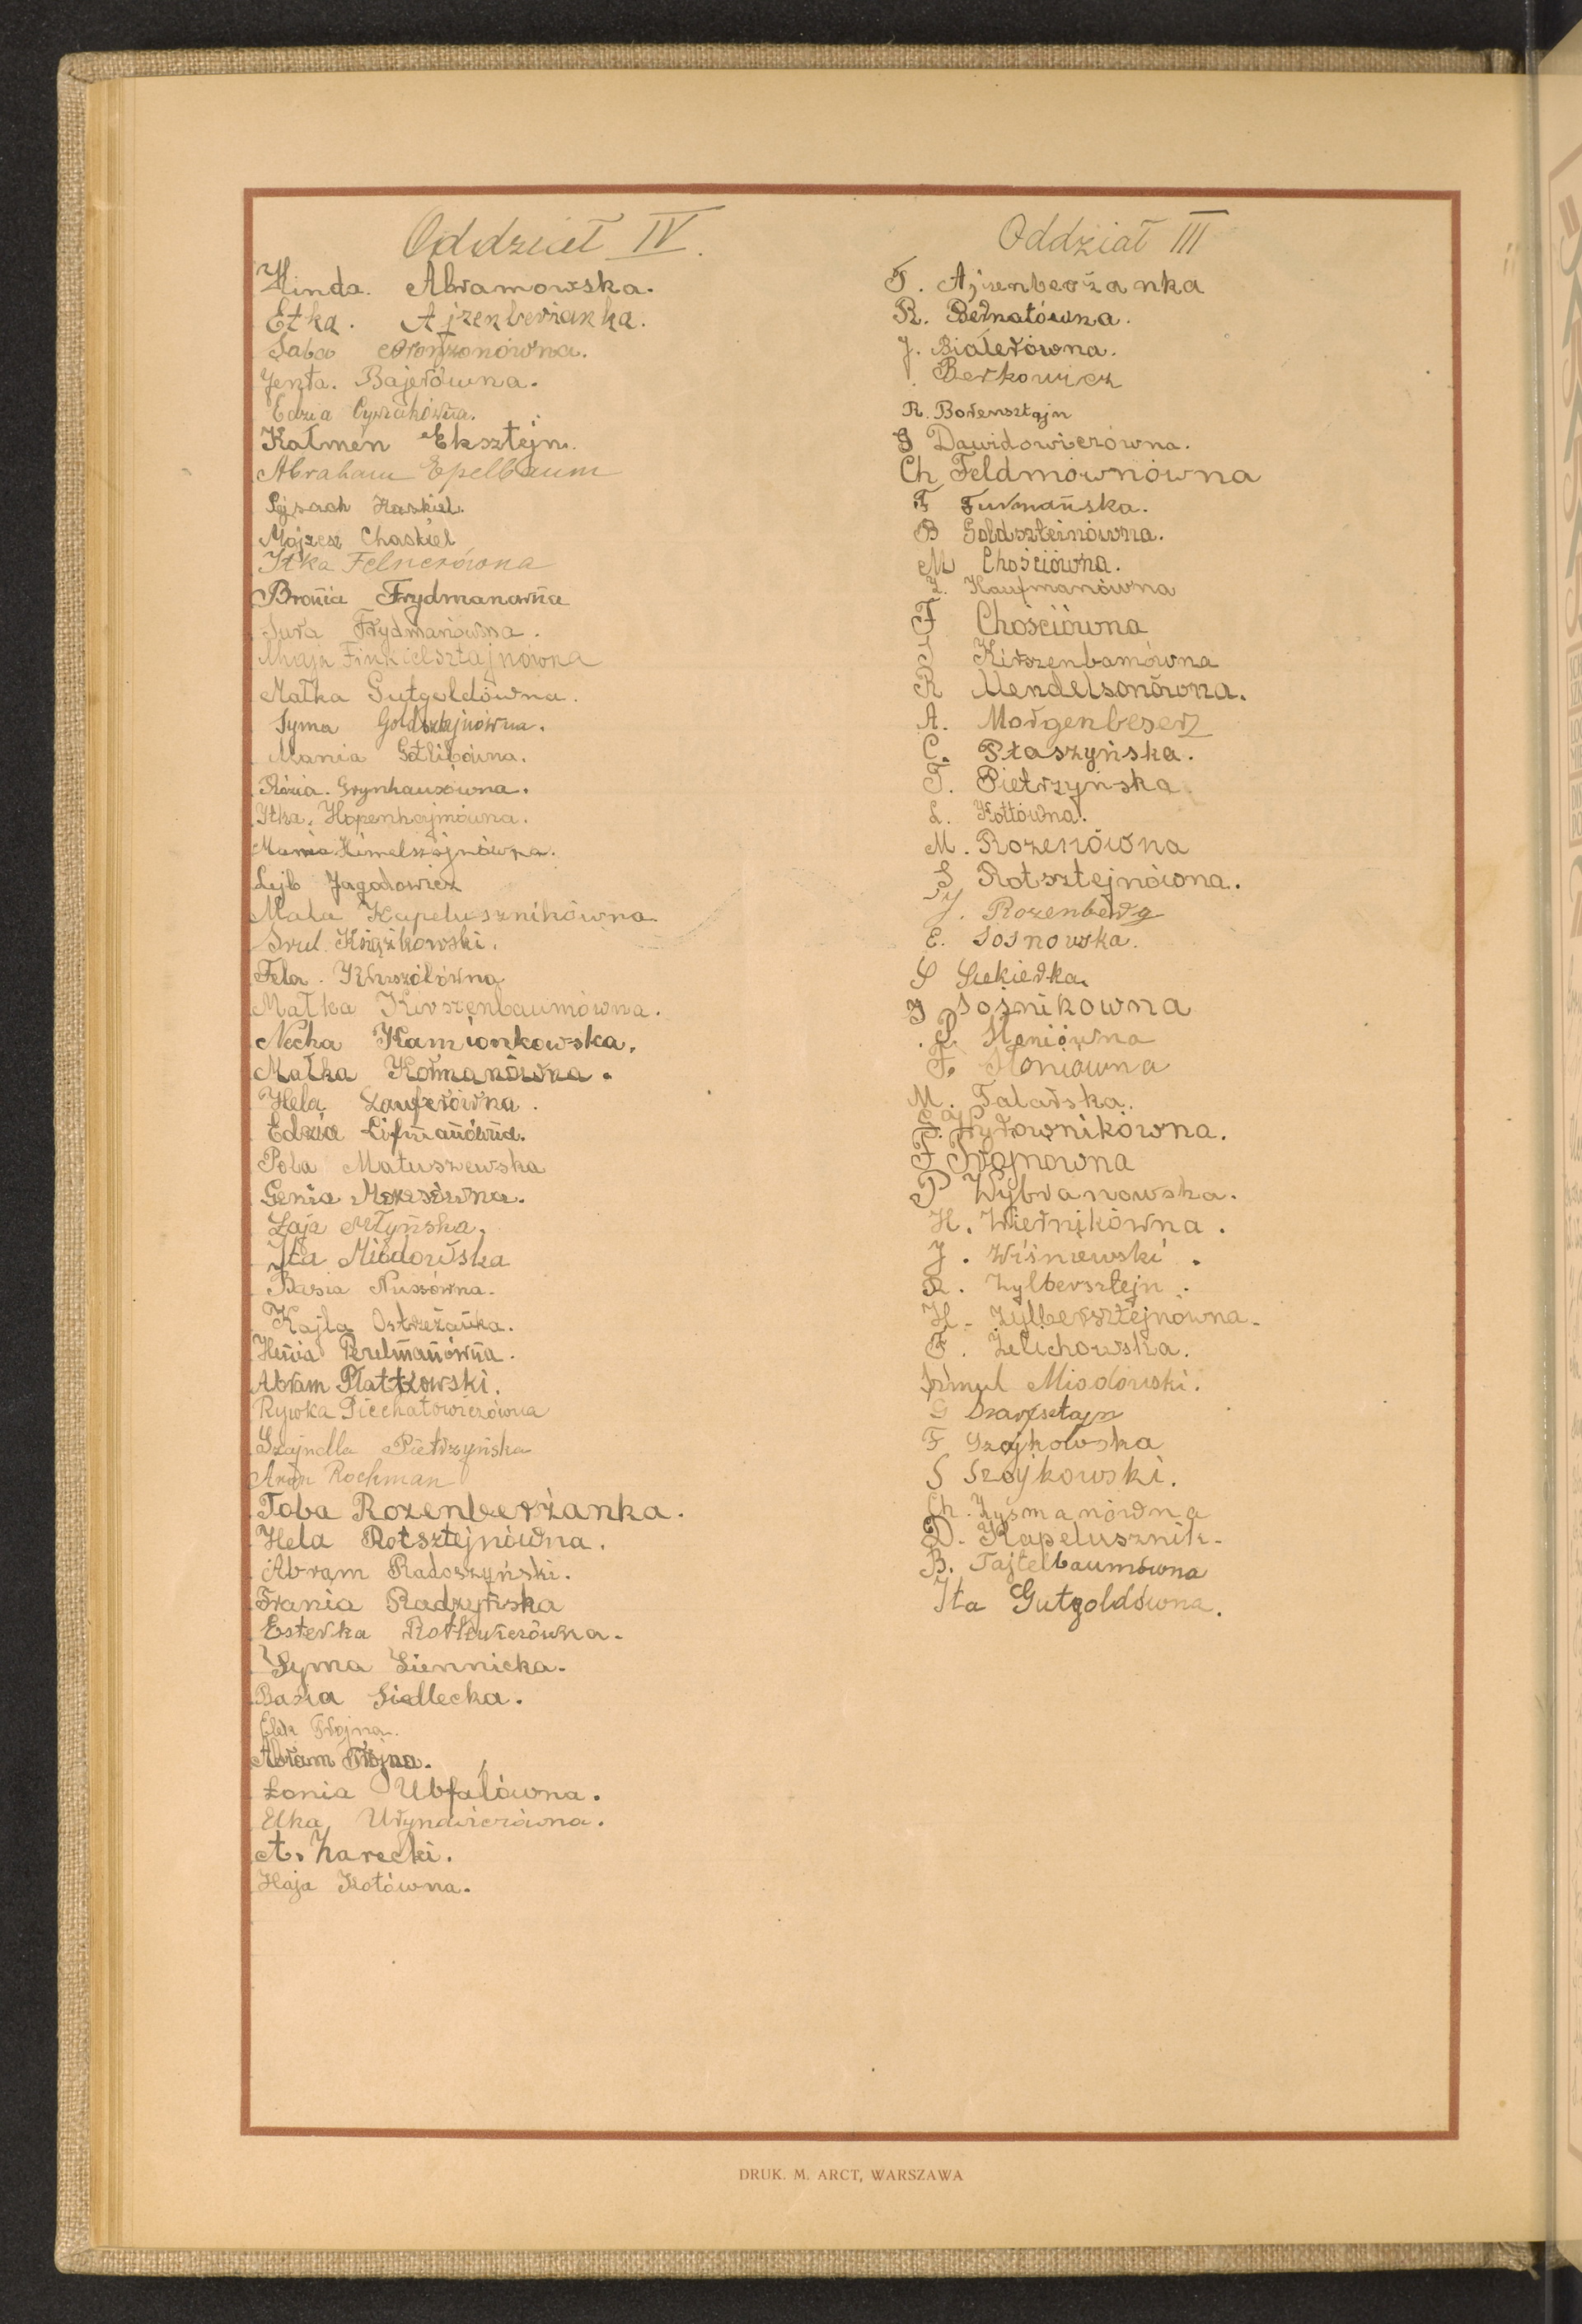 Oddział IV.
Hinda. Abramowska.
Etka. Ajzenberżanka.
Saba Aronzonówna.
Jenta. Bajerówna.
Edzia Cywiakówna.
Kałmen Eksztejn.
Abraham Epelbaum
Pejsach Haskiel.
Mojżesz Chaskiel
Itka Felnerówna
Bronia Frydmanowna
Sura Frydmanówna.
Finkielsztajnówna
Małka Gutgoldówna.
Syma Goldsztejnówna.
Mania Gotlibówna.
Rózia. Grynhauzówna.
Itka. Hopenhajmówna.
Mania Himelszajnówna.
Lejb Jagodowicz
Mala Kapelusznikówna.
Srul. Książkowski.
Fela.
Małka Kirszenbaumówna.
Necha Kamionkowska.
Małka Kormanówna.
Hela Lauferówna.
Edzia Lifmanówna.
Pola Matuszewska
Genia
Łaja Młyńska.
Ita Miodowska
Basia Nussówna.
Kajla Ostrzeżanka.
Henia Perelmanówna.
Abram Płattkowski.
Rywka Piechatowiczówna
Szajndla Pietrzyńska
Aron Rochman
Toba Rozenberżanka.
Hela Rotsztejnówna.
Abram Radoszyński.
Frania Radzyńska
Esterka
Syma Siennicka.
Basia Siedlecka.
Trojna.
Abram Trojna.
Łonia Ubfalówna.
Elka Urynowiczówna.
A. Zarecki.
Haja Kotówna.
Oddział III
F. Ajzenberżanka
R. Bernatówna.
J. Bialerówna.
Berkowicz
R. Borensztajn
G Dawidowiczówna.
Ch Feldmównówna
F Furmańska.
B Goldszteinówna.
M Chościówna.
Kaufmanówna
F Chościówna
Kirszenbamówna
R Mendelsonówna.
A. Morgenbeser
C. Ptaszyńska.
T. Pietrzyńska
L. Kottówna.
M. Rozenówna
S Rotsztejnówna.
J. Rozenberg
E. Sosnowska.
S Siekierka.
J Sośnikowna
Słoniówna
F. Słoniówna
M. Talarska.
Trydownikówna.
F Trojnowna
P Wybranowska.
H. Wiernikówna.
J. Wiśniewski.
R. Zylbersztejn.
H. Zylbersztejnowna.
F. Żelichowska.
Szmul Miodowski.
Szarfsztajn
F Szajkowska
S Szajkowski.
Ch. Zysmanówna
D. Kapelusznik.
B. Tajtelbaumówna
Ita Gutgoldówna.
DRUK. M. ARCT, WARSZAWA